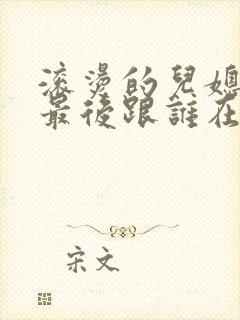 滚燙的兒媳
最後跟誰在
宋文